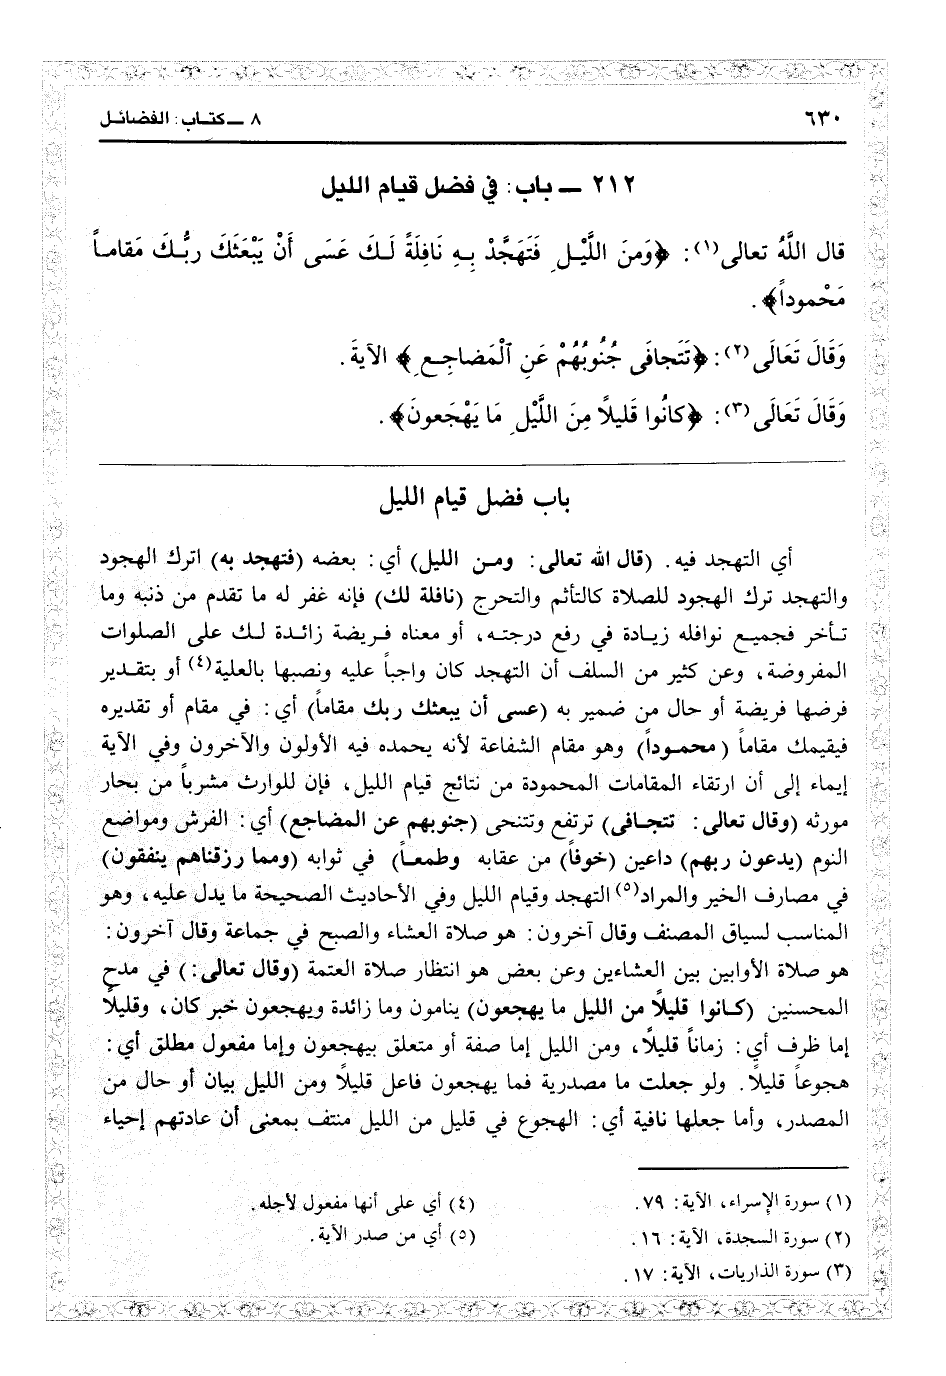 ٦٣٠ ٨ ــ كتاب: الفضائل
٢١٢ ــ باب: في فضل قيام الليل
قال اللَّهُ تعالى(١): ﴿وَمنَ اللَّيْلِ فَتَهَجَّدْ بِهِ نَافِلَةً لَكَ عَسَى أَنْ يَبْعَثَكَ ربُّكَ مَقاماً
مَحْموداً﴾.
وَقَالَ تَعَالَى(٢): ﴿تَتَجافَى جُنُوبُهُمْ عَنِ ٱلْمَضاجِعِ﴾ الآيةَ.
وَقَالَ تَعَالَى(٣): ﴿كانُوا قَليلاً مِنَ اللَّيْلِ مَا يَهْجَعونَ﴾.
باب فضل قيام الليل
أي التهجد فيه. (قال الله تعالى: ومن الليل) أي: بعضه (فتهجد به) اترك الهجود
والتهجد ترك الهجود للصلاة كالتأثم والتحرج (نافلة لك) فإنه غفر له ما تقدم من ذنبه وما
تأخر فجميع نوافله زيادة في رفع درجته، أو معناه فريضة زائدة لك على الصلوات
المفروضة، وعن كثير من السلف أن التهجد كان واجباً عليه ونصبها بالعلية(٤) أو بتقدير
فرضها فريضة أو حال من ضمير به (عسى أن يبعثك ربك مقاماً) أي: في مقام أو تقديره
فيقيمك مقاماً (محموداً) وهو مقام الشفاعة لأنه يحمده فيه الأولون والآخرون وفي الآية
إيماء إلى أن ارتقاء المقامات المحمودة من نتائج قيام الليل، فإن للوارث مشرباً من بحار
مورثه (وقال تعالى: تتجافى) ترتفع وتتنحى (جنوبهم عن المضاجع) أي: الفرش ومواضع
النوم (يدعون ربهم) داعين (خوفاً) من عقابه وطمعاً) في ثوابه (ومما رزقناهم ينفقون)
في مصارف الخير والمراد(٥) التهجد وقيام الليل وفي الأحاديث الصحيحة ما يدل عليه، وهو
المناسب لسياق المصنف وقال آخرون: هو صلاة العشاء والصبح في جماعة وقال آخرون:
هو صلاة الأوابين بين العشاءين وعن بعض هو انتظار صلاة العتمة (وقال تعالى:) في مدح
المحسنين (كانوا قليلاً من الليل ما يهجعون) ينامون وما زائدة ويهجعون خبر كان، وقليلاً
إما ظرف أي: زماناً قليلاً، ومن الليل إما صفة أو متعلق بيهجعون وإما مفعول مطلق أي:
هجوعاً قليلاً. ولو جعلت ما مصدرية فما يهجعون فاعل قليلاً ومن الليل بيان أو حال من
المصدر، وأما جعلها نافية أي: الهجوع في قليل من الليل منتف بمعنى أن عادتهم إحياء
(١) سورة الإسراء، الآية: ٧٩.
(٢) سورة السجدة، الآية: ١٦.
(٣) سورة الذاريات، الآية: ١٧.
(٤) أي على أنها مفعول لأجله.
(٥) أي من صدر الآية.